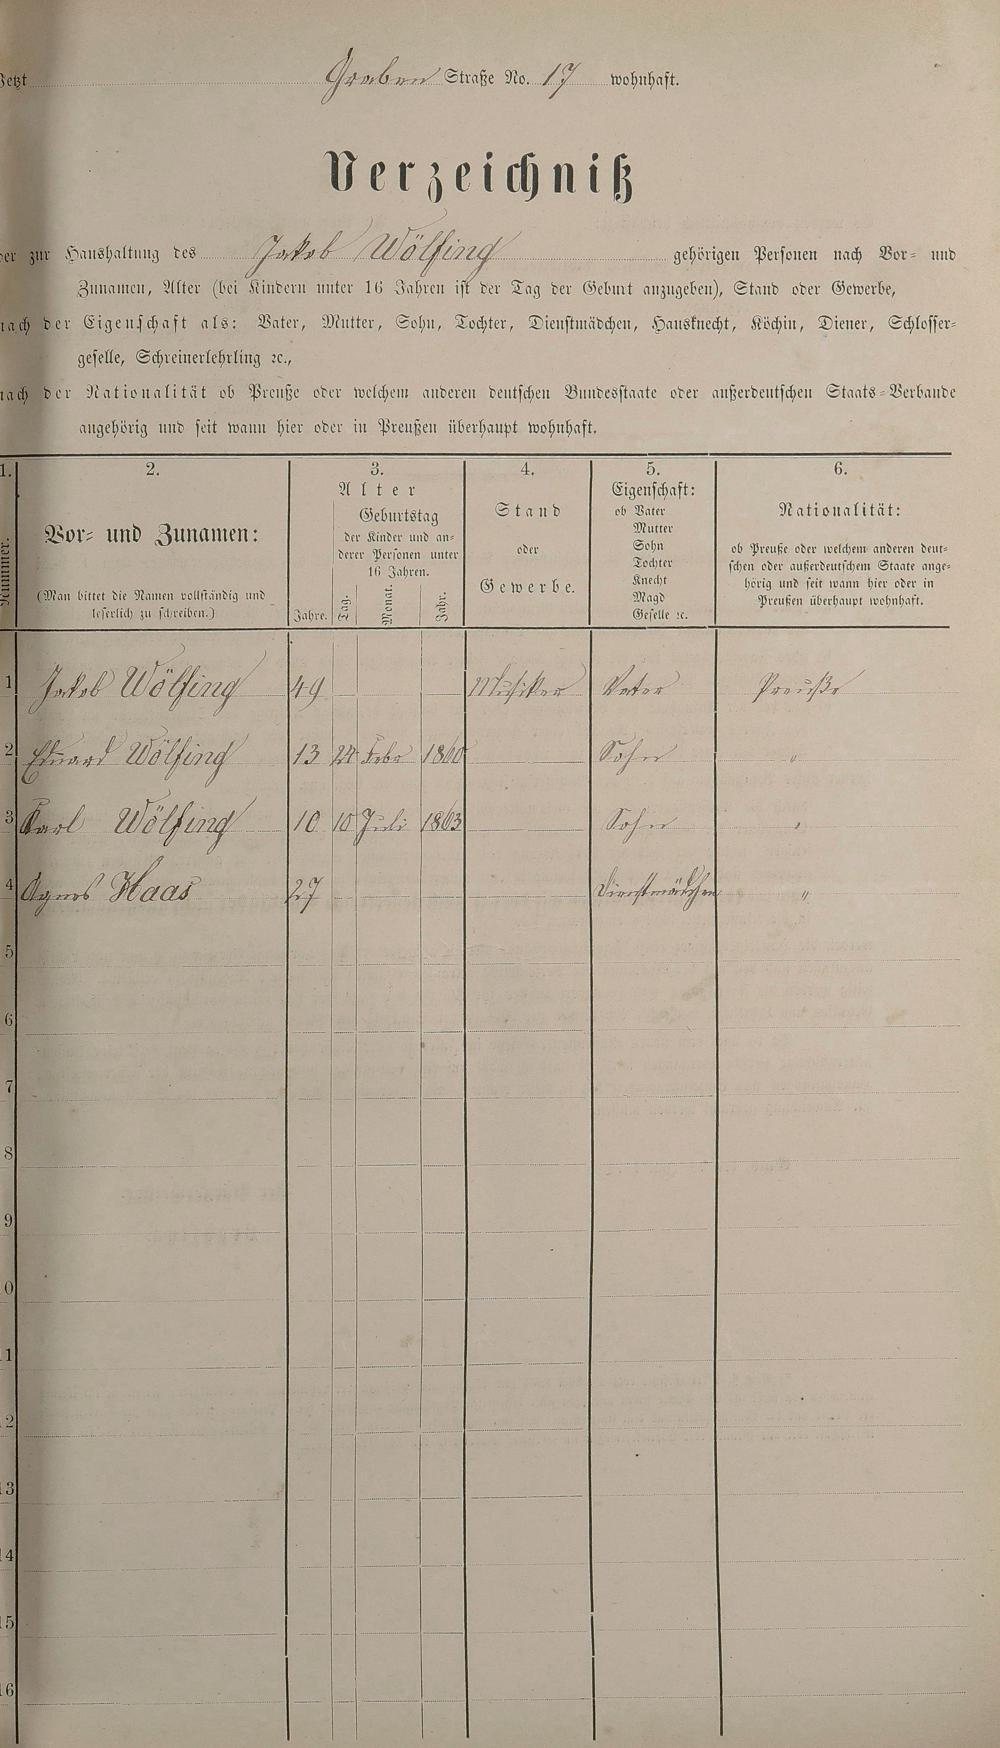 Jetzt Graben Straße No. 17 wohnhaft.
Verzeichniß
der zur Haushaltung des Jakob Wölfing gehörigen Personen nach Vor- und
Zunamen, Alter (bei Kindern unter 16 Jahren ist der Tag der Geburt anzugeben), Stand oder Gewerbe,
nach der Eigenschaft als: Vater, Mutter, Sohn, Tochter, Dienstmädchen, Hausknecht, Köchin, Diener, Schlosser-
geselle, Schreinerlehrling ꝛc.,
nach der Nationalität ob Preuße oder welchem anderen deutschen Bundesstaate oder außerdeutschen Staats-Verbande
angehörig und seit wann hier oder in Preußen überhaupt wohnhaft.
1. 2. 3. 4. 5. 6.
Nummer.
Vor- und Zunamen:
(Man bittet die Namen vollständig und
leserlich zu schreiben.)
Alter
Geburtstag
der Kinder und an-
derer Personen unter
16 Jahren.
Jahre. Tag. Monat. Jahr.
Stand
oder
Gewerbe.
Eigenschaft:
ob Vater
Mutter
Sohn
Tochter
Knecht
Magd
Geselle ꝛc.
Nationalität:
ob Preuße oder welchem anderen deut-
schen oder außerdeutschem Staate ange-
hörig und seit wann hier oder in
Preußen überhaupt wohnhaft.
1 Jakob Wölfing 49 Musiker Vater Preuße
2 Eduard Wölfing 13 24 Febr 1860 Sohn "
3 Karl Wölfing 10 10 Juli 1863 Sohn "
4 Agnes Haas 27 Dienstmädchen "
5
6
7
8
9
0
1
2
3
4
5
16